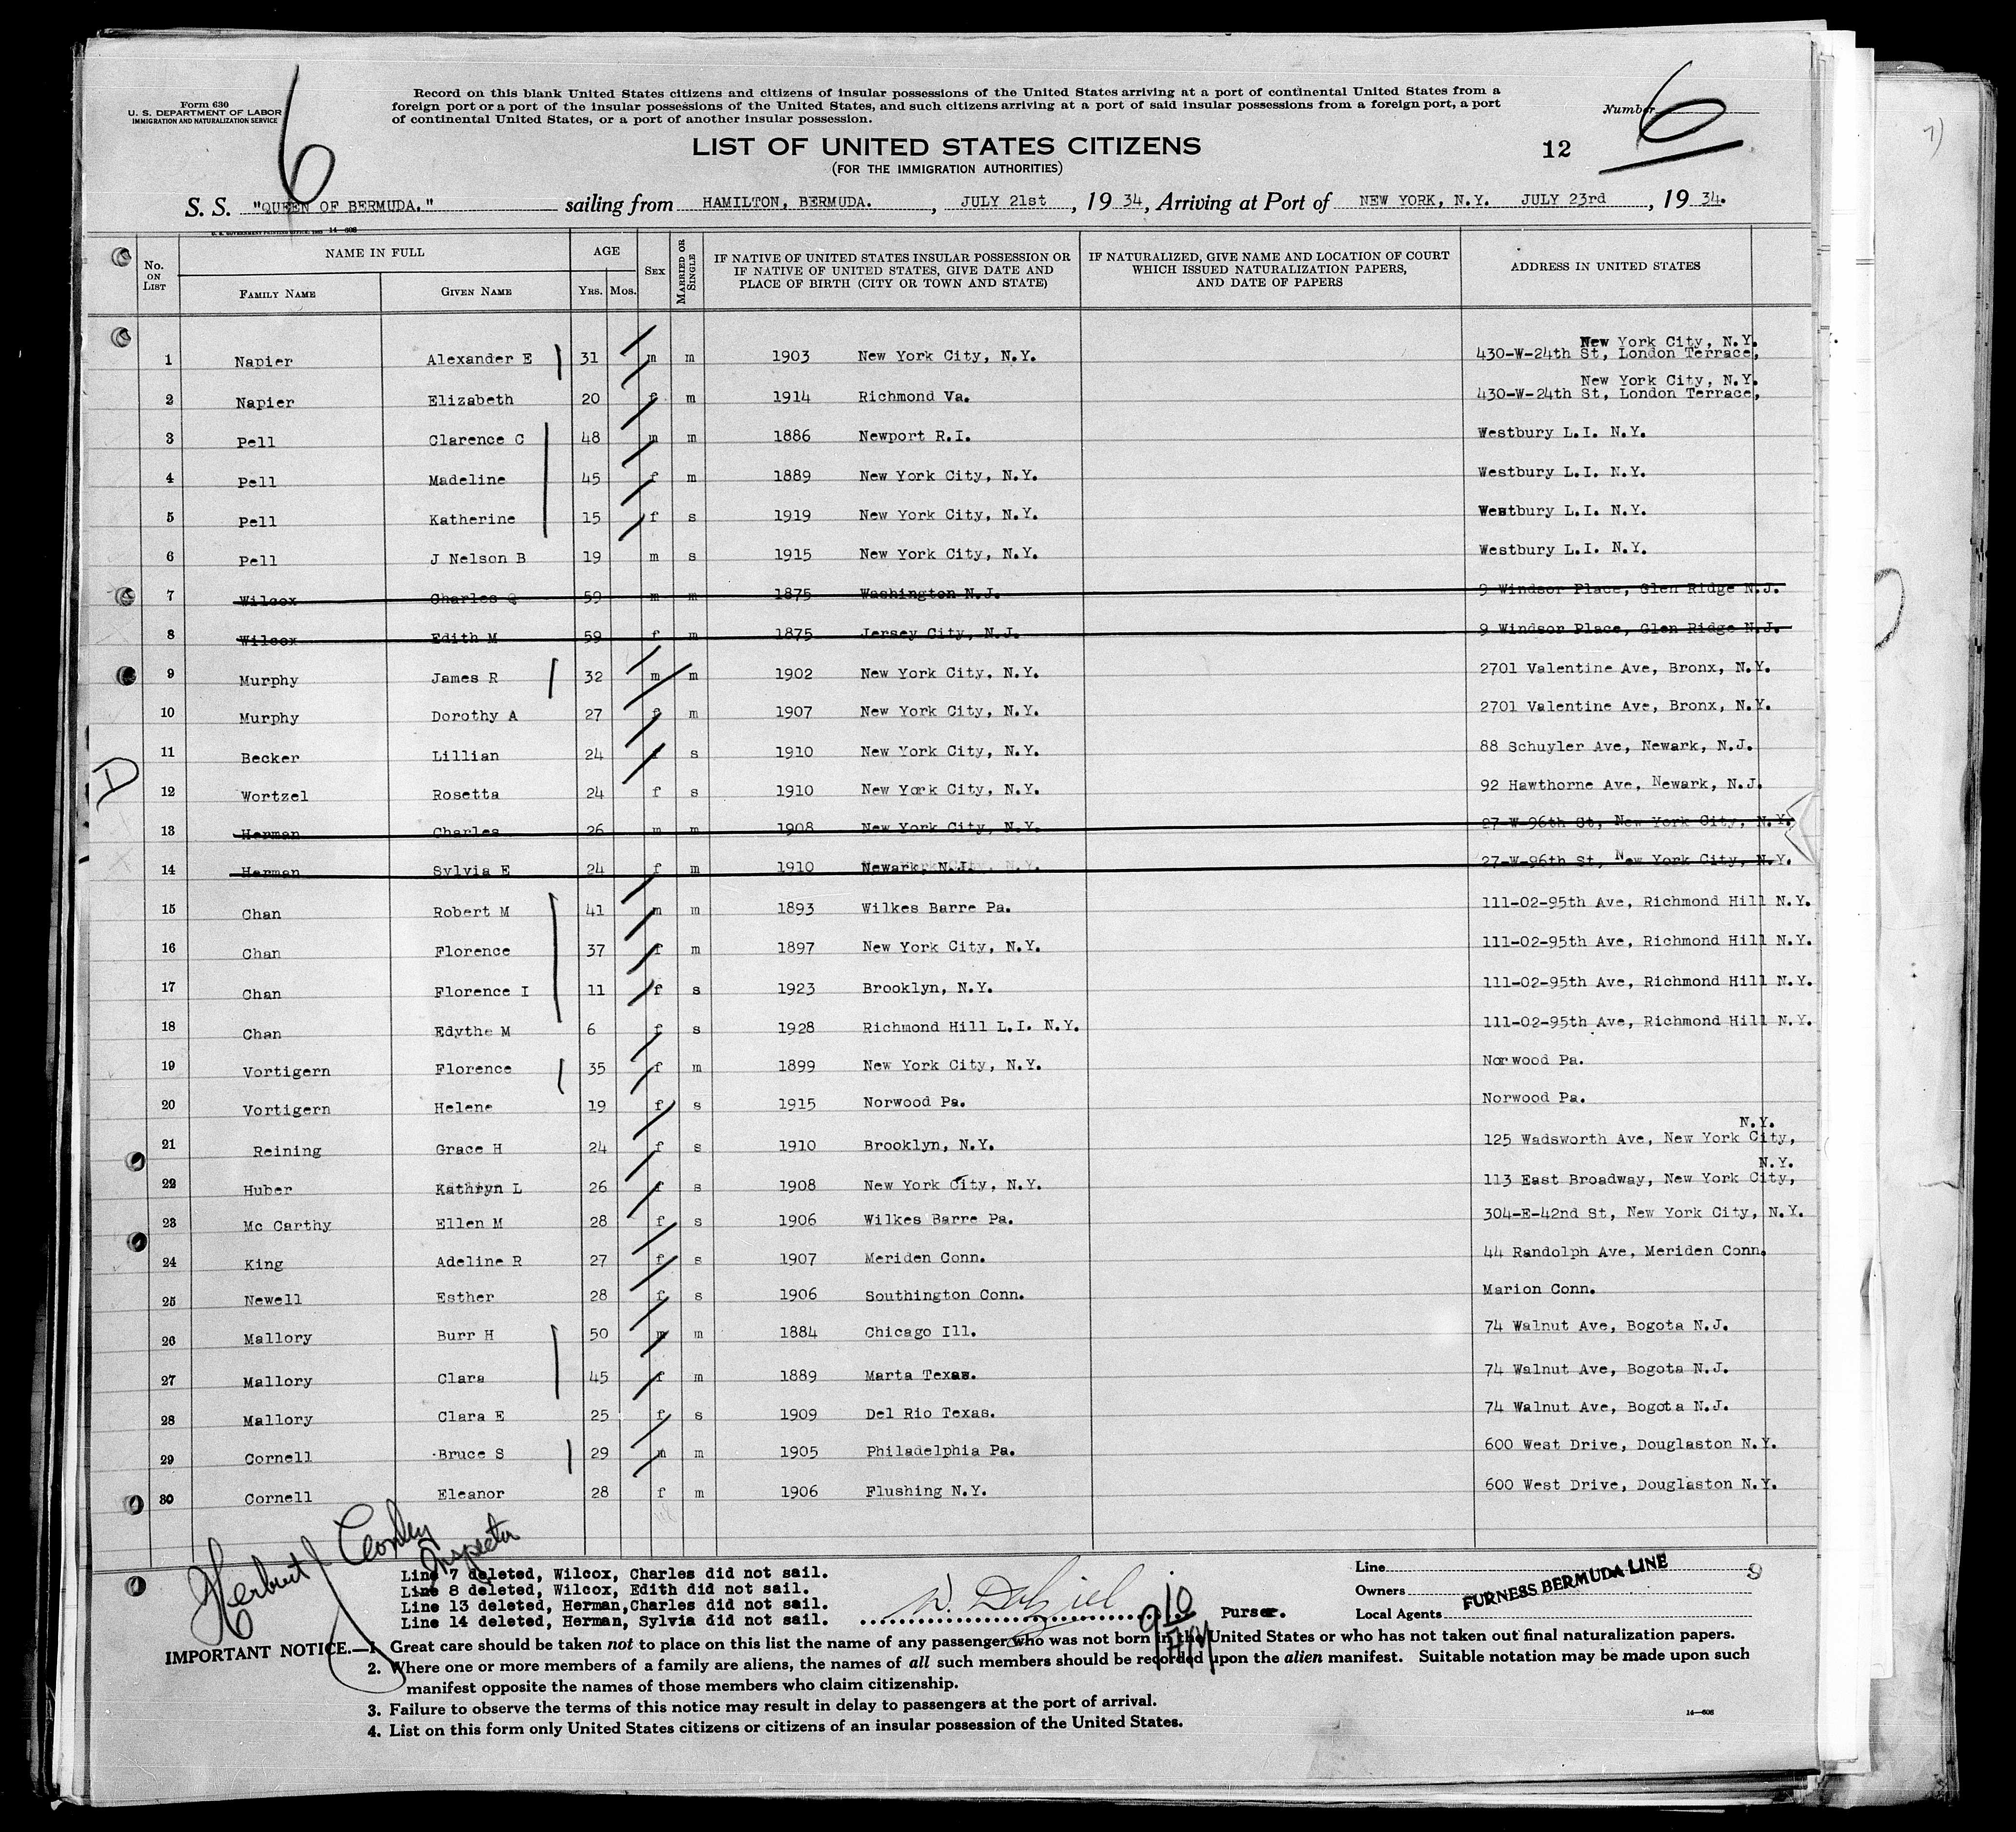 6
Form 630
U. S. DEPARTMENT OF LABOR
IMMIGRATION AND NATURALIZATION SERVICE
Record on this blank United States citizens and citizens of insular possessions of the United States arriving at a port of continental United States from a
foreign port or a port of the insular possessions of the United States, and such citizens arriving at a port of said insular possessions from a foreign port, a port
of continental United States, or a port of another insular possession.
Number 6
LIST OF UNITED STATES CITIZENS
12
(FOR THE IMMIGRATION AUTHORITIES)
S. S. "QUEEN OF BERMUDA." sailing from HAMILTON, BERMUDA. , JULY 21st , 19 34, Arriving at Port of NEW YORK, N.Y. JULY 23rd , 19 34.
14-608
No. ON LIST NAME IN FULL AGE SEX MARRIED OR SINGLE IF NATIVE OF UNITED STATES INSULAR POSSESSION OR IF NATIVE OF UNITED STATES, GIVE DATE AND PLACE OF BIRTH (CITY OR TOWN AND STATE) IF NATURALIZED, GIVE NAME AND LOCATION OF COURT WHICH ISSUED NATURALIZATION PAPERS, AND DATE OF PAPERS ADDRESS IN UNITED STATES
FAMILY NAME GIVEN NAME YRS. MOS.
New York City, N.Y.
1 Napier Alexander E 31 m m 1903 New York City, N.Y. 430-W-24th St, London Terrace,
New York City, N.Y.
2 Napier Elizabeth 20 f m 1914 Richmond Va. 430-W-24th St, London Terrace,
3 Pell Clarence C 48 m m 1886 Newport R.I. Westbury L.I. N.Y.
4 Pell Madeline 45 f m 1889 New York City, N.Y. Westbury L.I. N.Y.
5 Pell Katherine 15 f s 1919 New York City, N.Y. Westbury L.I. N.Y.
6 Pell J Nelson B 19 m s 1915 New York City, N.Y. Westbury L.I. N.Y.
7 Wilcox Charles 59 m m 1875 Washington N.J. 9 Windsor Place, Glen Ridge N.J.
8 Wilcox Edith M 59 f m 1875 Jersey City, N.J. 9 Windsor Place, Glen Ridge N.J.
9 Murphy James R 32 m m 1902 New York City, N.Y. 2701 Valentine Ave, Bronx, N.Y.
10 Murphy Dorothy A 27 f m 1907 New York City, N.Y. 2701 Valentine Ave, Bronx, N.Y.
11 Becker Lillian 24 f s 1910 New York City, N.Y. 88 Schuyler Ave, Newark, N.J.
D
12 Wortzel Rosetta 24 f s 1910 New York City, N.Y. 92 Hawthorne Ave, Newark, N.J.
13 Herman Charles 26 m m 1908 New York City, N.Y. 27-W-96th St, New York City, N.Y.
14 Herman Sylvia E 24 f m 1910 Newark, N.J. 27-W-96th St, New York City, N.Y.
15 Chan Robert M 41 m m 1893 Wilkes Barre Pa. 111-02-95th Ave, Richmond Hill N.Y.
16 Chan Florence 37 f m 1897 New York City, N.Y. 111-02-95th Ave, Richmond Hill N.Y.
17 Chan Florence I 11 f s 1923 Brooklyn, N.Y. 111-02-95th Ave, Richmond Hill N.Y.
18 Chan Edythe M 6 f s 1928 Richmond Hill L.I. N.Y. 111-02-95th Ave, Richmond Hill N.Y.
19 Vortigern Florence 35 f m 1899 New York City, N.Y. Norwood Pa.
20 Vortigern Helene 19 f s 1915 Norwood Pa. Norwood Pa.
N.Y.
21 Reining Grace H 24 f s 1910 Brooklyn, N.Y. 125 Wadsworth Ave, New York City,
N.Y.
22 Huber Kathryn L 26 f s 1908 New York City, N.Y. 113 East Broadway, New York City,
23 Mc Carthy Ellen M 28 f s 1906 Wilkes Barre Pa. 304-E-42nd St, New York City, N.Y.
24 King Adeline R 27 f s 1907 Meriden Conn. 44 Randolph Ave, Meriden Conn.
25 Newell Esther 28 f s 1906 Southington Conn. Marion Conn.
26 Mallory Burr H 50 m m 1884 Chicago Ill. 74 Walnut Ave, Bogota N.J.
27 Mallory Clara 45 f m 1889 Marta Texas. 74 Walnut Ave, Bogota N.J.
28 Mallory Clara E 25 f s 1909 Del Rio Texas. 74 Walnut Ave, Bogota N.J.
29 Cornell Bruce S 29 m m 1905 Philadelphia Pa. 600 West Drive, Douglaston N.Y.
30 Cornell Eleanor 28 f m 1906 Flushing N.Y. 600 West Drive, Douglaston N.Y.
Herbert J Conley
Inspector
Line 7 deleted, Wilcox, Charles did not sail.
Line 8 deleted, Wilcox, Edith did not sail.
Line 13 deleted, Herman,Charles did not sail.
Line 14 deleted, Herman, Sylvia did not sail.
W. Dalziel Purser.
Line
Owners FURNESS BERMUDA LINE
Local Agents
IMPORTANT NOTICE.—1. Great care should be taken not to place on this list the name of any passenger who was not born in the United States or who has not taken out final naturalization papers.
2. Where one or more members of a family are aliens, the names of all such members should be recorded upon the alien manifest. Suitable notation may be made upon such
manifest opposite the names of those members who claim citizenship.
3. Failure to observe the terms of this notice may result in delay to passengers at the port of arrival.
4. List on this form only United States citizens or citizens of an insular possession of the United States.
14-608